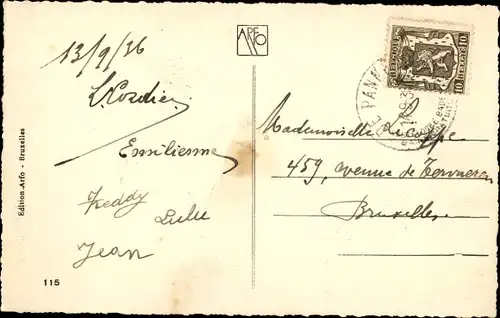 13/9/36
ARFO
BELGIQUE
BELGIE
10
10
DE PANNE
Emilienne
Mademoiselle
459, avenue de Tervueren
Bruxelles
Freddy
Lulu
Jean
Edition Arfo - Bruxelles
115